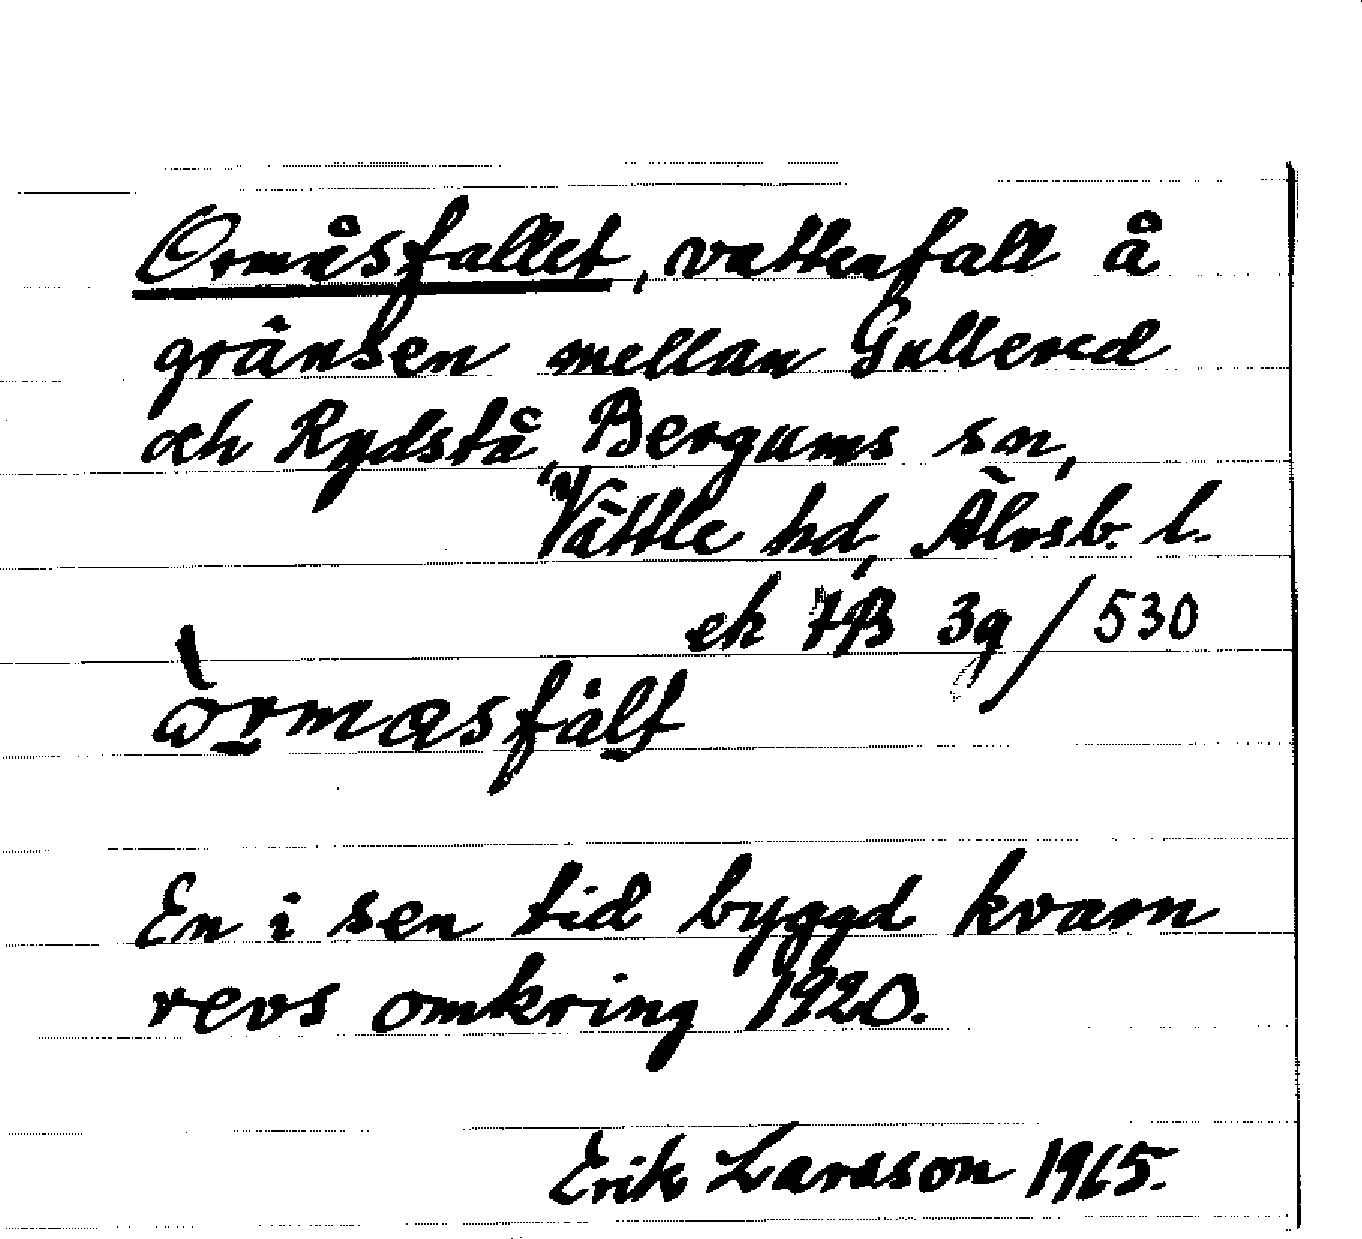 Ormåsfallet, vattenfall å
gränsen mellan Gullered
och Rydstå, Bergums sn,
Vättle hd, Älvsb. l.
ek 7B 3g/530
òrmasfålt
En i sen tid byggd kvarn
revs omkring 1920.
Erik Larsson 1965.